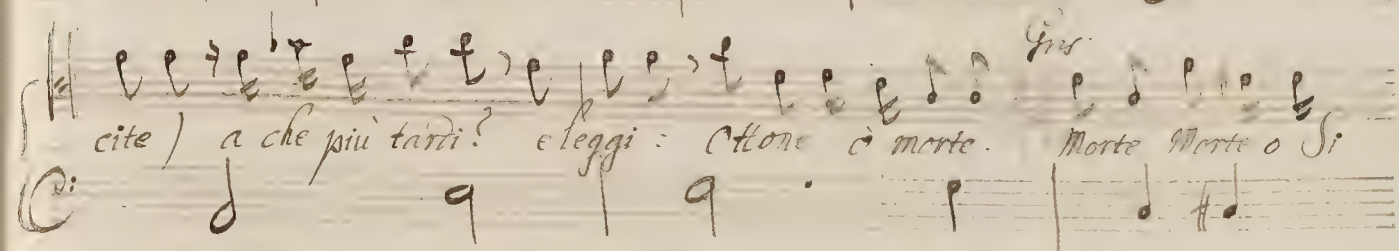 Gris.
cite) a che più tardi? eleggi: Ottone ò morte. Morte Morte o Si